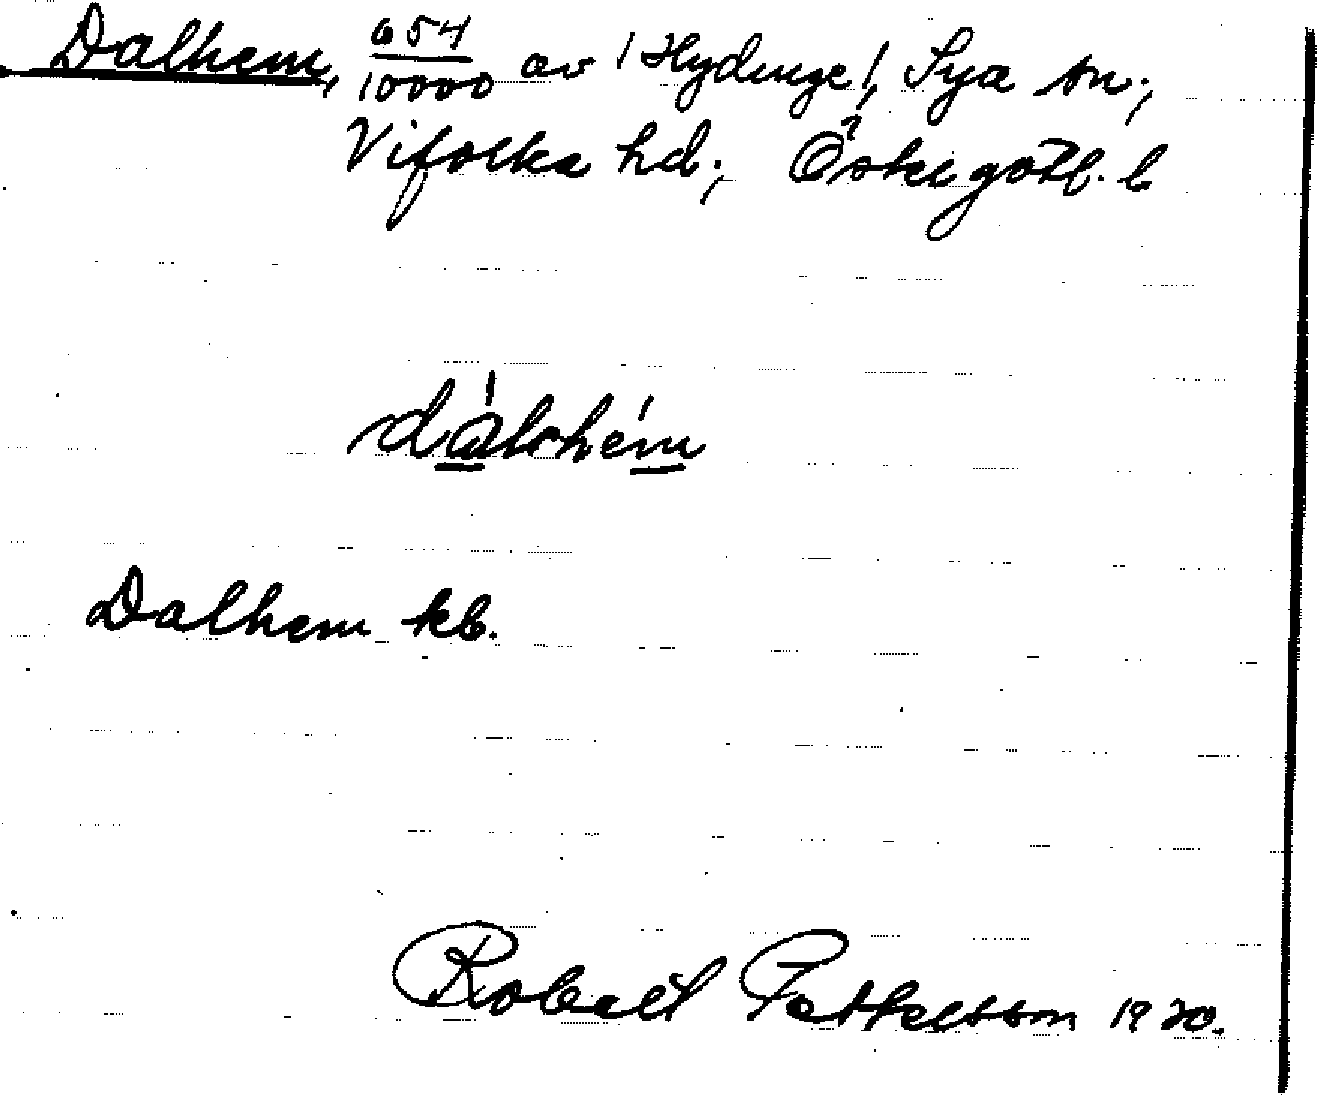 Dalhem, 654/10000 av /Hydinge/, Sya sn.,
Vifolka hd., Östergötl. l
dàlhém
Dalhem kb.
Robert 1920.